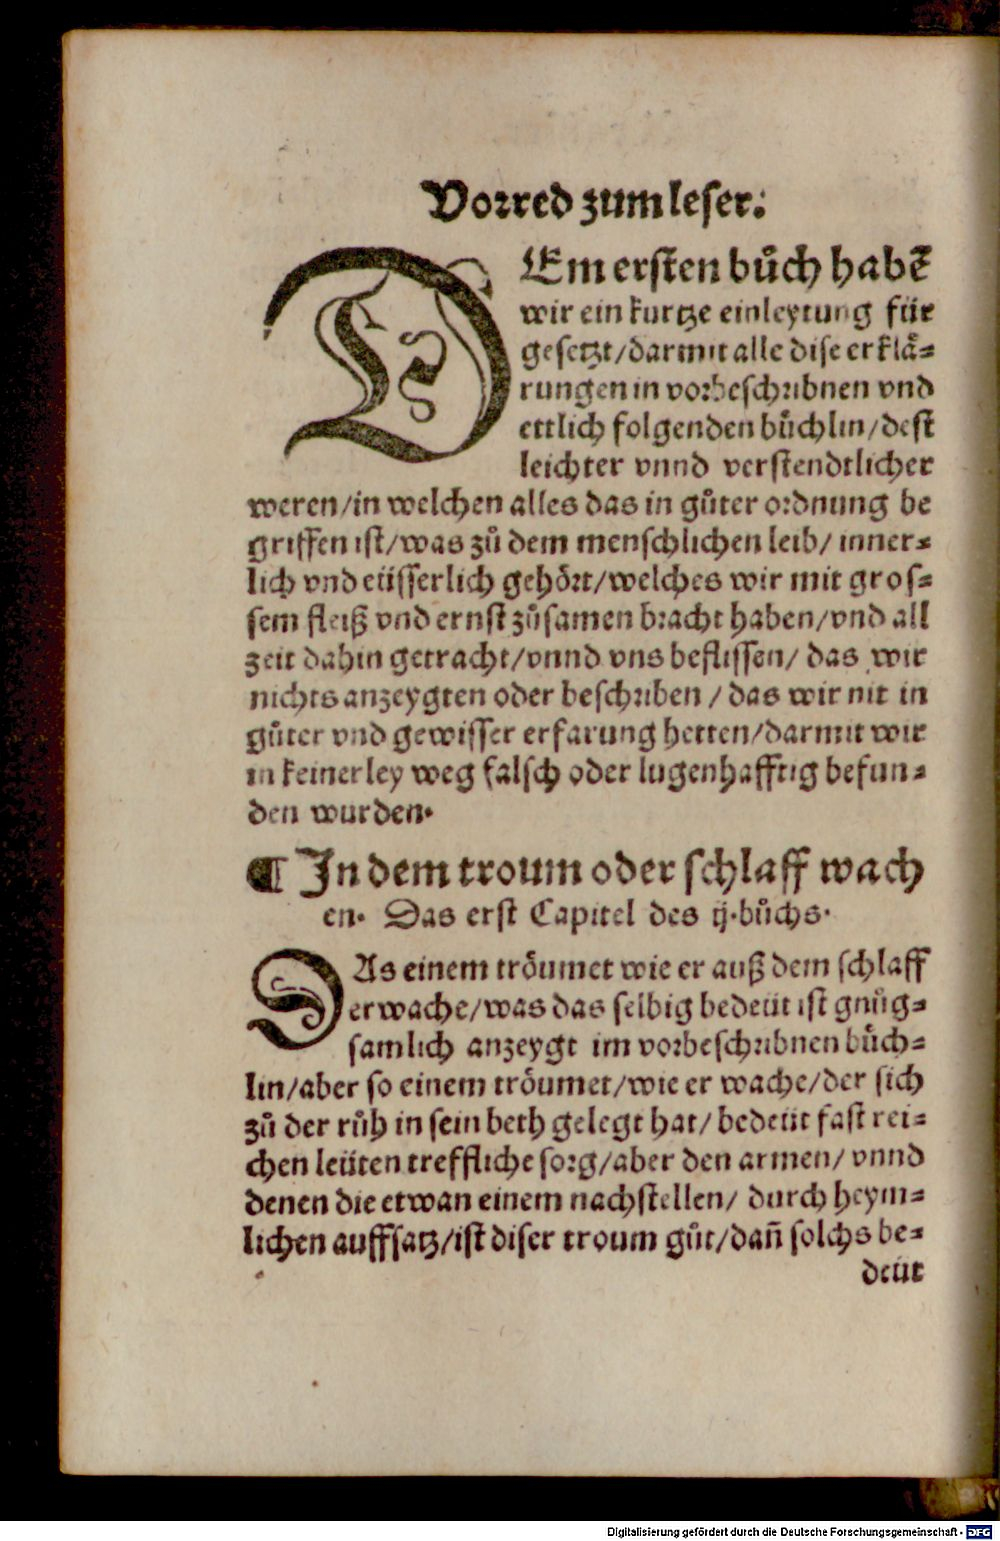 Vorred zum leser.
DEm ersten bůch habē
wir ein kurtze einleytung für
gesetzt/darmit alle dise erklä⸗
rungen in vorbeschribnen vnd
ettlich folgenden bůchlin/dest
leichter vnnd verstendtlicher
weren/in welchen alles das in gůter ordnung be
griffen ist/was zů dem menschlichen leib/ inner⸗
lich vnd eüsserlich gehört/welches wir mit gros⸗
sem fleiß vnd ernst zůsamen bracht haben/vnd all
zeit dahin getracht/vnnd vns beflissen/ das wir
nichts anzeygten oder beschriben / das wir nit in
gůter vnd gewisser erfarung hetten/darmit wir
in keinerley weg falsch oder lugenhafftig befun⸗
den wurden.
¶ In dem troum oder schlaff wach
en. Das erst Capitel des ij.bůchs.
DAs einem tröumet wie er auß dem schlaff
erwache/was das selbig bedeüt ist gnůg⸗
samlich anzeygt im vorbeschribnen bůch⸗
lin/aber so einem tröumet/wie er wache/der sich
zů der růh in sein beth gelegt hat/ bedeüt fast rei⸗
chen leüten treffliche sorg/aber den armen/ vnnd
denen die etwan einem nachstellen/ durch heym⸗
lichen auffsatz/ist diser troum gůt/dañ solchs be⸗
deüt
Digitalisierung gefördert durch die Deutsche Forschungsgemeinschaft - DFG